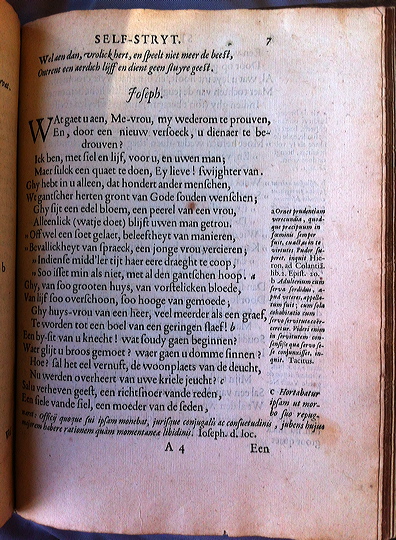 SELF-STRYT. 7
Wel aen dan, vrolick hert, en speelt niet meer de beest,
Ontrent een aerdsch lijff en dient geen stuyre geest.
Joseph.
WAt gaet u aen, Me-vrou, my wederom te prouven,
En, door een nieuw versoeck, u dienaer te be-
drouven?
Ick ben, met siel en lijf, voor u, en uwen man;
Maer sulck een quaet te doen, Ey lieve! swijghter van.
Ghy hebt in u alleen, dat hondert ander menschen,
Wegantscher herten gront van Gode souden wenschen;
Ghy sijt een edel bloem, een peerel van een vrou,
Alleenlick (watje doet) blijft uwen man getrou.
„ Off wel een soet gelaet, beleeftheyt van manieren,
„ Bevallickheyt van spraeck, een jonge vrou verçieren;
„ Indiense midd'ler tijt haer eere draeght te coop,
„ Soo isset min als niet, met al den gantschen hoop. a
Ghy, van soo grooten huys, van vorstelicken bloede,
Van lijf soo overschoon, soo hooge van gemoede,
Ghy huys-vrou van een heer, veel meerder als een graef,
Te worden tot een boel van een geringen slaef! b
Een by-sit van u knecht! wat soudy gaen beginnen?
Waer glijt u broos gemoet? waer gaen u domme sinnen?
Hoe? sal het eel vernuft, de woonplaets van de deucht,
Nu werden overheert van uwe kriele jeucht? c
Sal u verheven geest, een richtsnoer vande reden,
Een siele vande siel, een moeder van de seden,
a Ornet prudentiam
verecundia, quod-
que præcipuum in
fœminis semper
fuit,
virtutes. Pudor su-
peret. inquit Hie-
ron. ad Celantiã.
lib. 2. Epist. 20.
b Adulterium cum
servo sordidius, a-
pud veteres, appella-
tum fuit; cum sola
cohabitatio cum
servo servitute coër-
ceretur. Videri enim
in servitutem con-
sensisse quæ servo se-
se conjunxisset, in-
quit. Tacitus.
c Hortabatur
ipsam ut mor-
bo suo repug-
naret: officij quoque sui ipsam monebat, jurisque conjugalis ac consuetudinis, jubens hujus
majorem habere rationem quam momentaneæ libidinis. Ioseph. d. loc.
A 4 Een